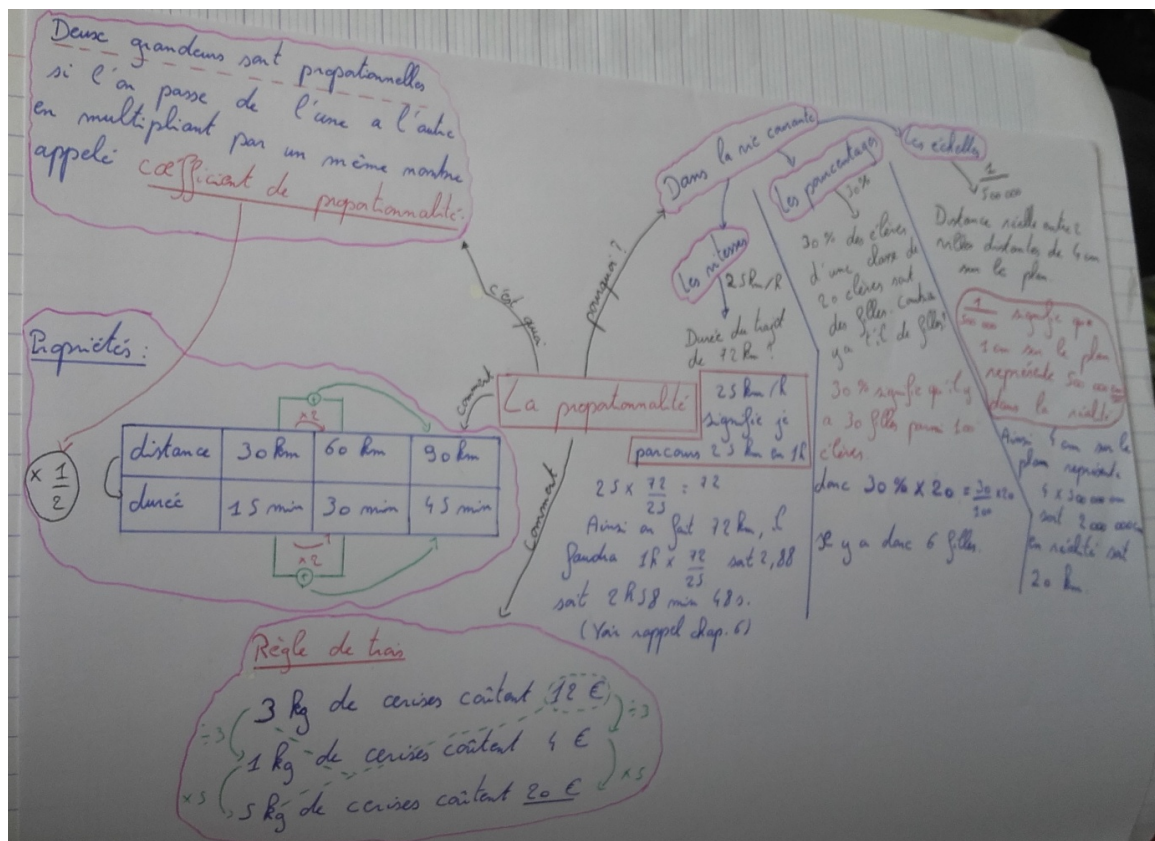 Deux grandeurs sont proportionnelles
si l'on passe de l'une a l'autre
en multipliant par un même nombre
appelé coefficient de proportionnalité.
c'est quoi
pourquoi ?
comment
comment
La proportionnalité
Propriétés :
× 1/2
+
×2
distance 30 km 60 km 90 km
durée 15 min 30 min 45 min
×2
+
Règle de trois
3 kg de cerises coûtent 12 €
÷3
÷3
1 kg de cerises coûtent 4 €
×5
×5
5 kg de cerises coûtent 20 €
Dans la vie courante
Les vitesses
25 km/h
Durée du trajet
de 72 km ?
25 km/h
signifie je
parcours 25 km en 1h
25 × 72/25 = 72
Ainsi on fait 72 km, il
faudra 1h × 72/25 soit 2,88
soit 2h58 min 48s.
(Voir rappel chap. 6)
Les pourcentages
30%
30% des élèves
d'une classe de
20 élèves sont
des filles. Combien
y a t'il de filles?
30% signifie qu'il y
a 30 filles parmi 100
élèves.
donc 30% × 20 = 30/100 × 20
Il y a donc 6 filles.
Les échelles
1/500 000
Distance réelle entre 2
villes distantes de 4 cm
sur le plan.
1/500 000 signifie que
1 cm sur le plan
représente 500 000 cm
dans la réalité
Ainsi 4 cm sur le
plan représente
4 × 500 000 cm
soit 2 000 000 cm
en réalité soit
20 km.